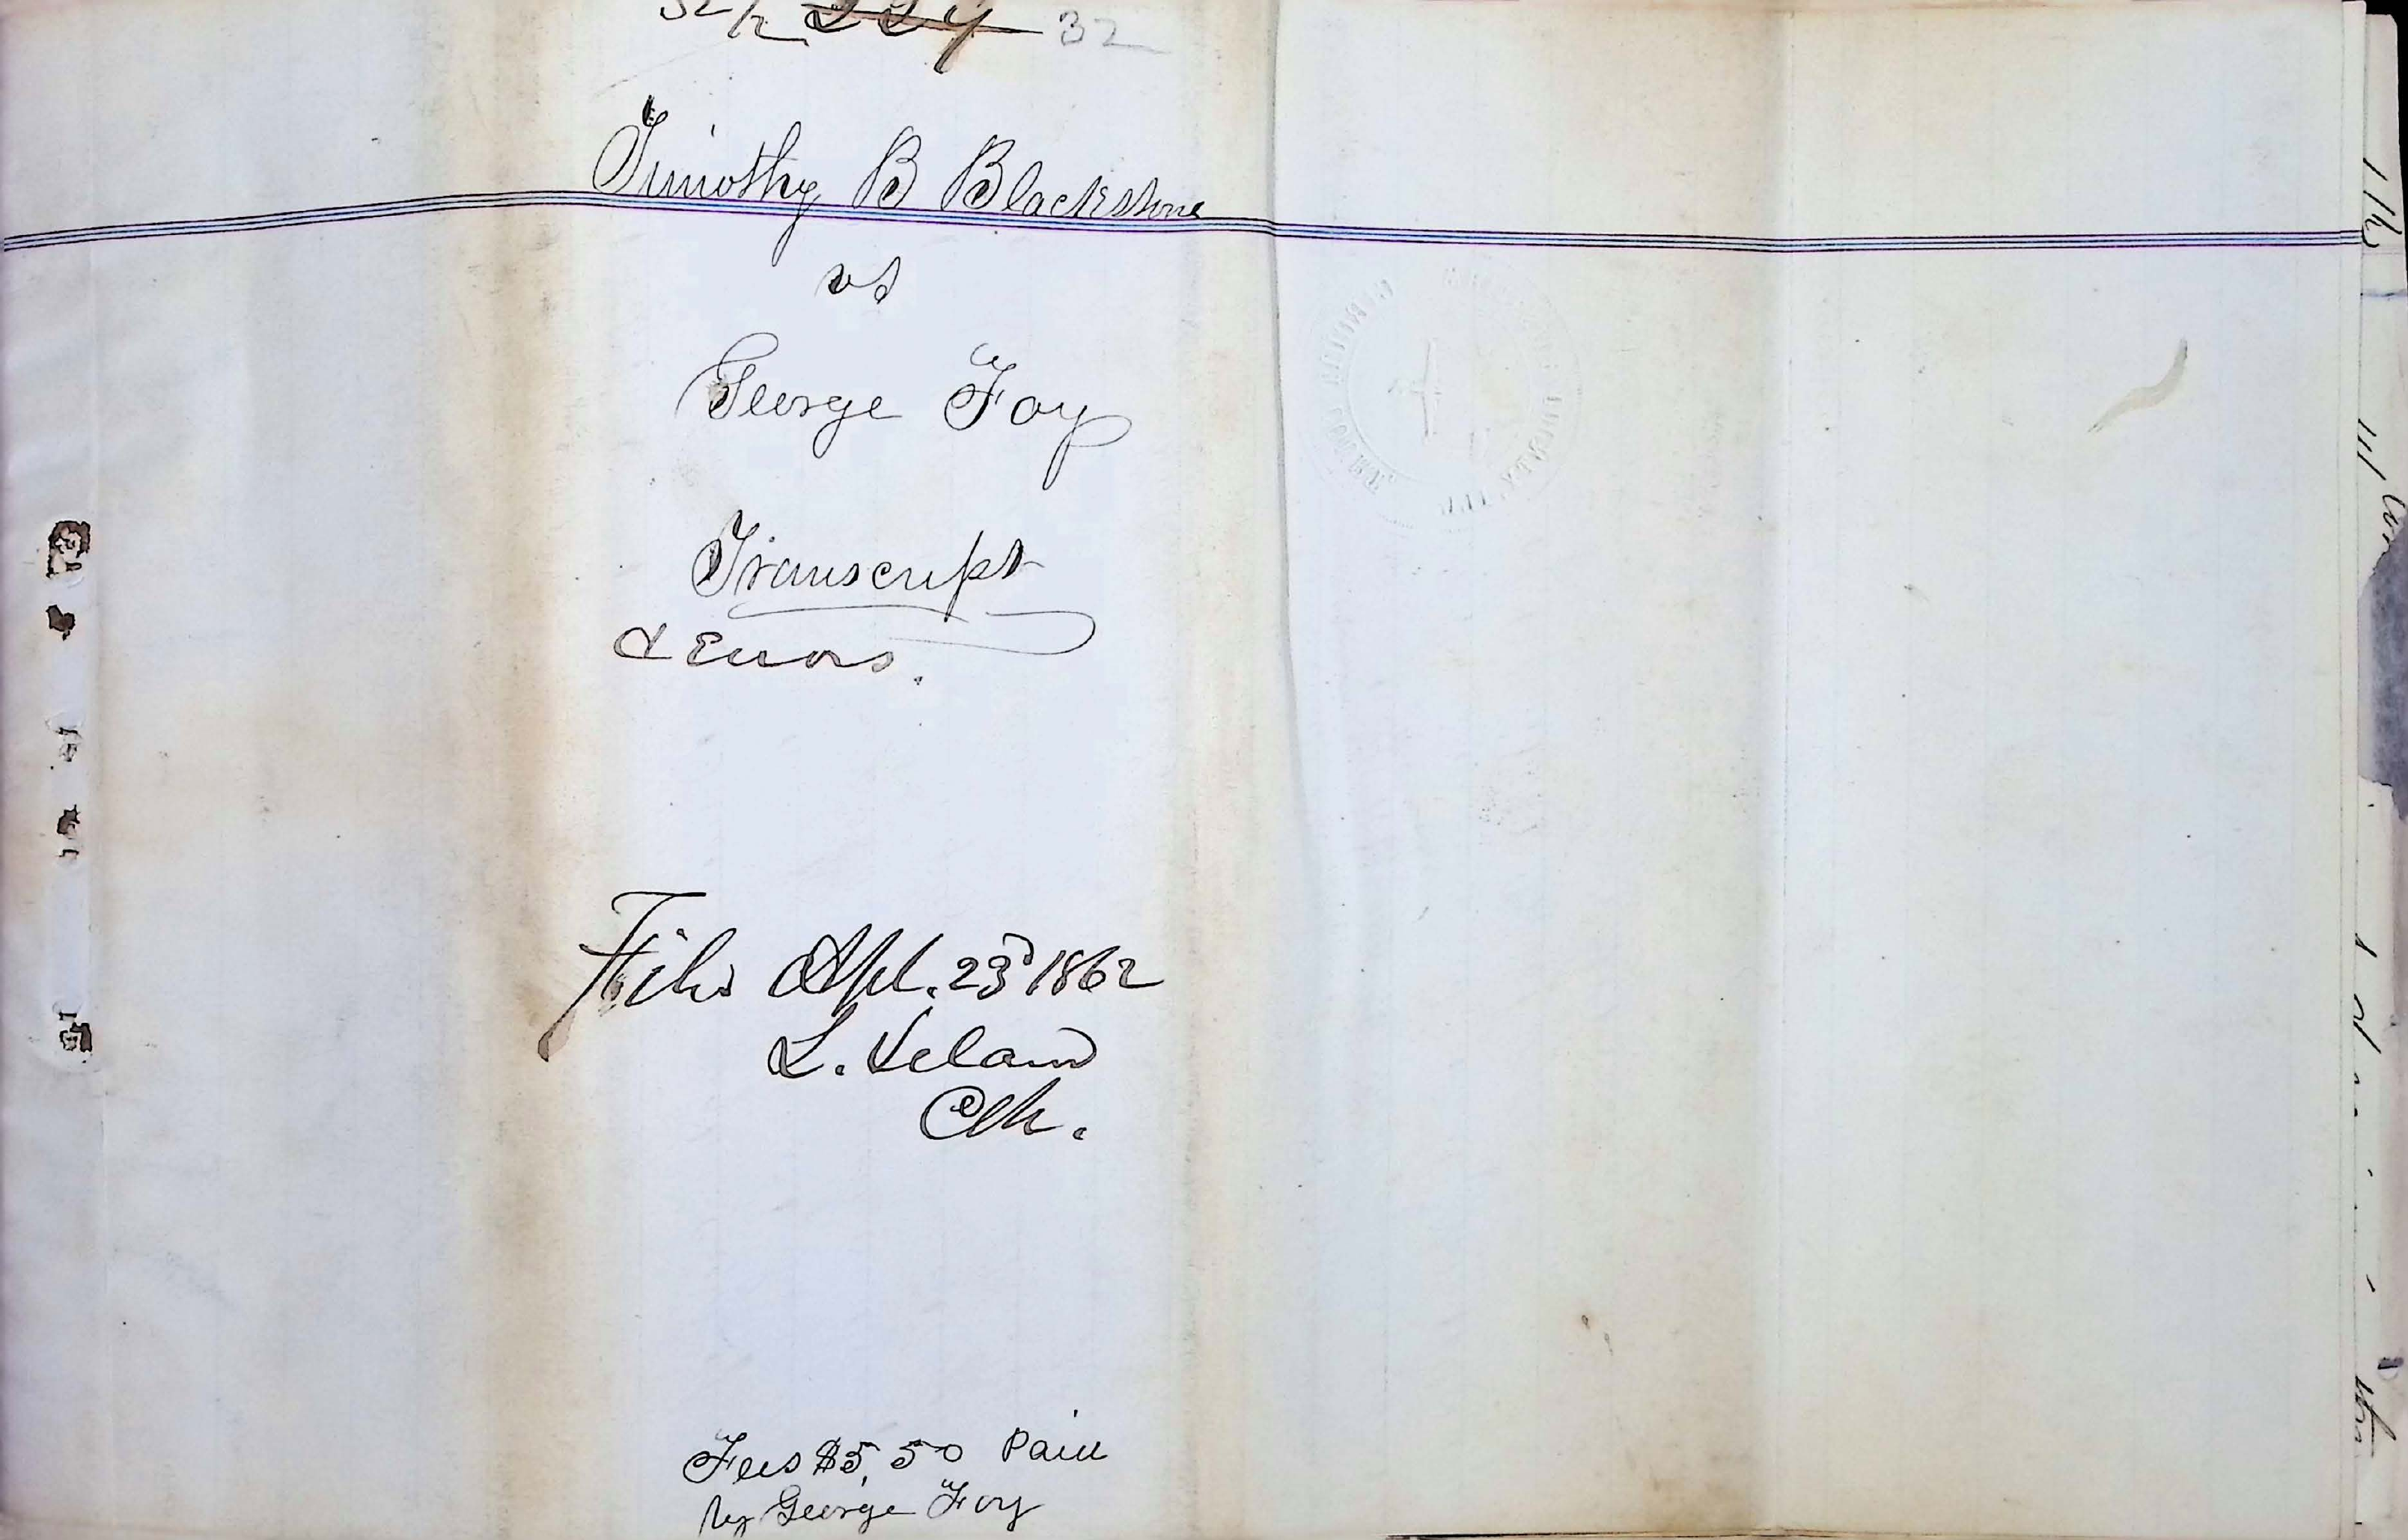 224 32
Timothy B Blackstone
vs
George Foy
Transcript
& Errors.
Filed Apl. 23d 1862
L. Leland
Clk.
Fees $5,50 Paid
by George Foy